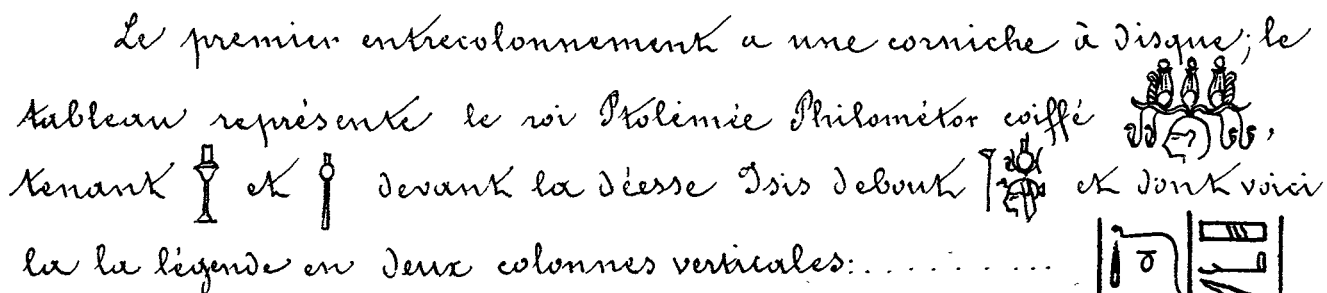 Le premier entrecolonnement a une corniche à disque; le
tableau représente le roi Ptolémée Philométor coiffé ,
tenant et devant la déesse Isis debout et dont voici
la la légende en deux colonnes verticales:..........